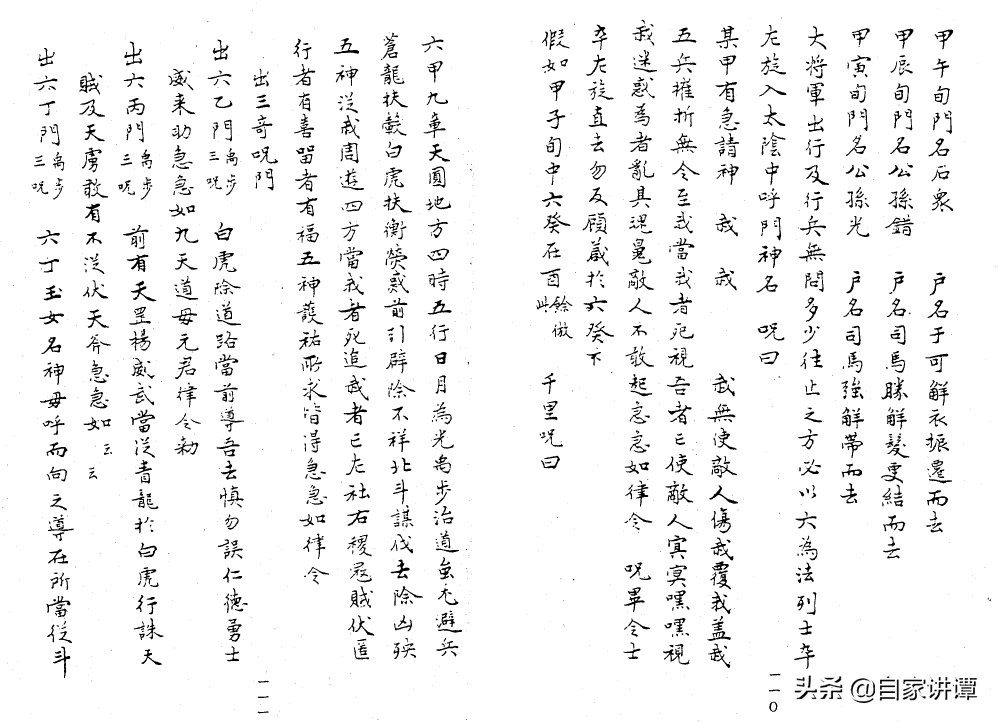 甲午旬門名石衆　戶名于可解衣振還而去
甲辰旬門名公孫錯　戶名司馬勝解髮更結而去
甲寅旬門名公孫光　戶名司馬強解帶而去
大將軍出行及行兵無問多少往止之方必以六為法列士卒
左旋入太陰中呼門神名　呪曰
某甲有急請神　我　我　我無使敵人傷我覆我蓋我
五兵摧折無令至我當我者死視吾者亡使敵人冥冥嘿嘿視
我迷惑為者亂其魂鬼敵人不敢起忘忘如律令　呪畢令士
卒左旋直去勿反顧藏於六癸下
假如甲子旬中六癸在酉餘倣此　千里呪曰
一一〇
六甲九章天圓地方四時五行日月為光禹步治道蚩尤避兵
蒼龍扶轂白虎扶衡熒惑前引辟除不祥北斗謀伐去除凶殃
五神從我周遊四方當我者死追我者亡左社右稷寇賊伏匿
行者有喜留者有福五神護祐所求皆得急急如律令
出三奇呪門
出六乙門禹步三呪　白虎除道路當前導吾去慎勿誤仁德勇士
威来助急急如九天道母元君律令勑
出六丙門禹步三呪　前有天罡楊威武當從青龍於白虎行誅天
賊及天虜敢有不從伏天斧急急如云云
出六丁門禹步三呪　六丁玉女名神母呼而向之導在所當從斗
一一一
头条 @自家讲谭